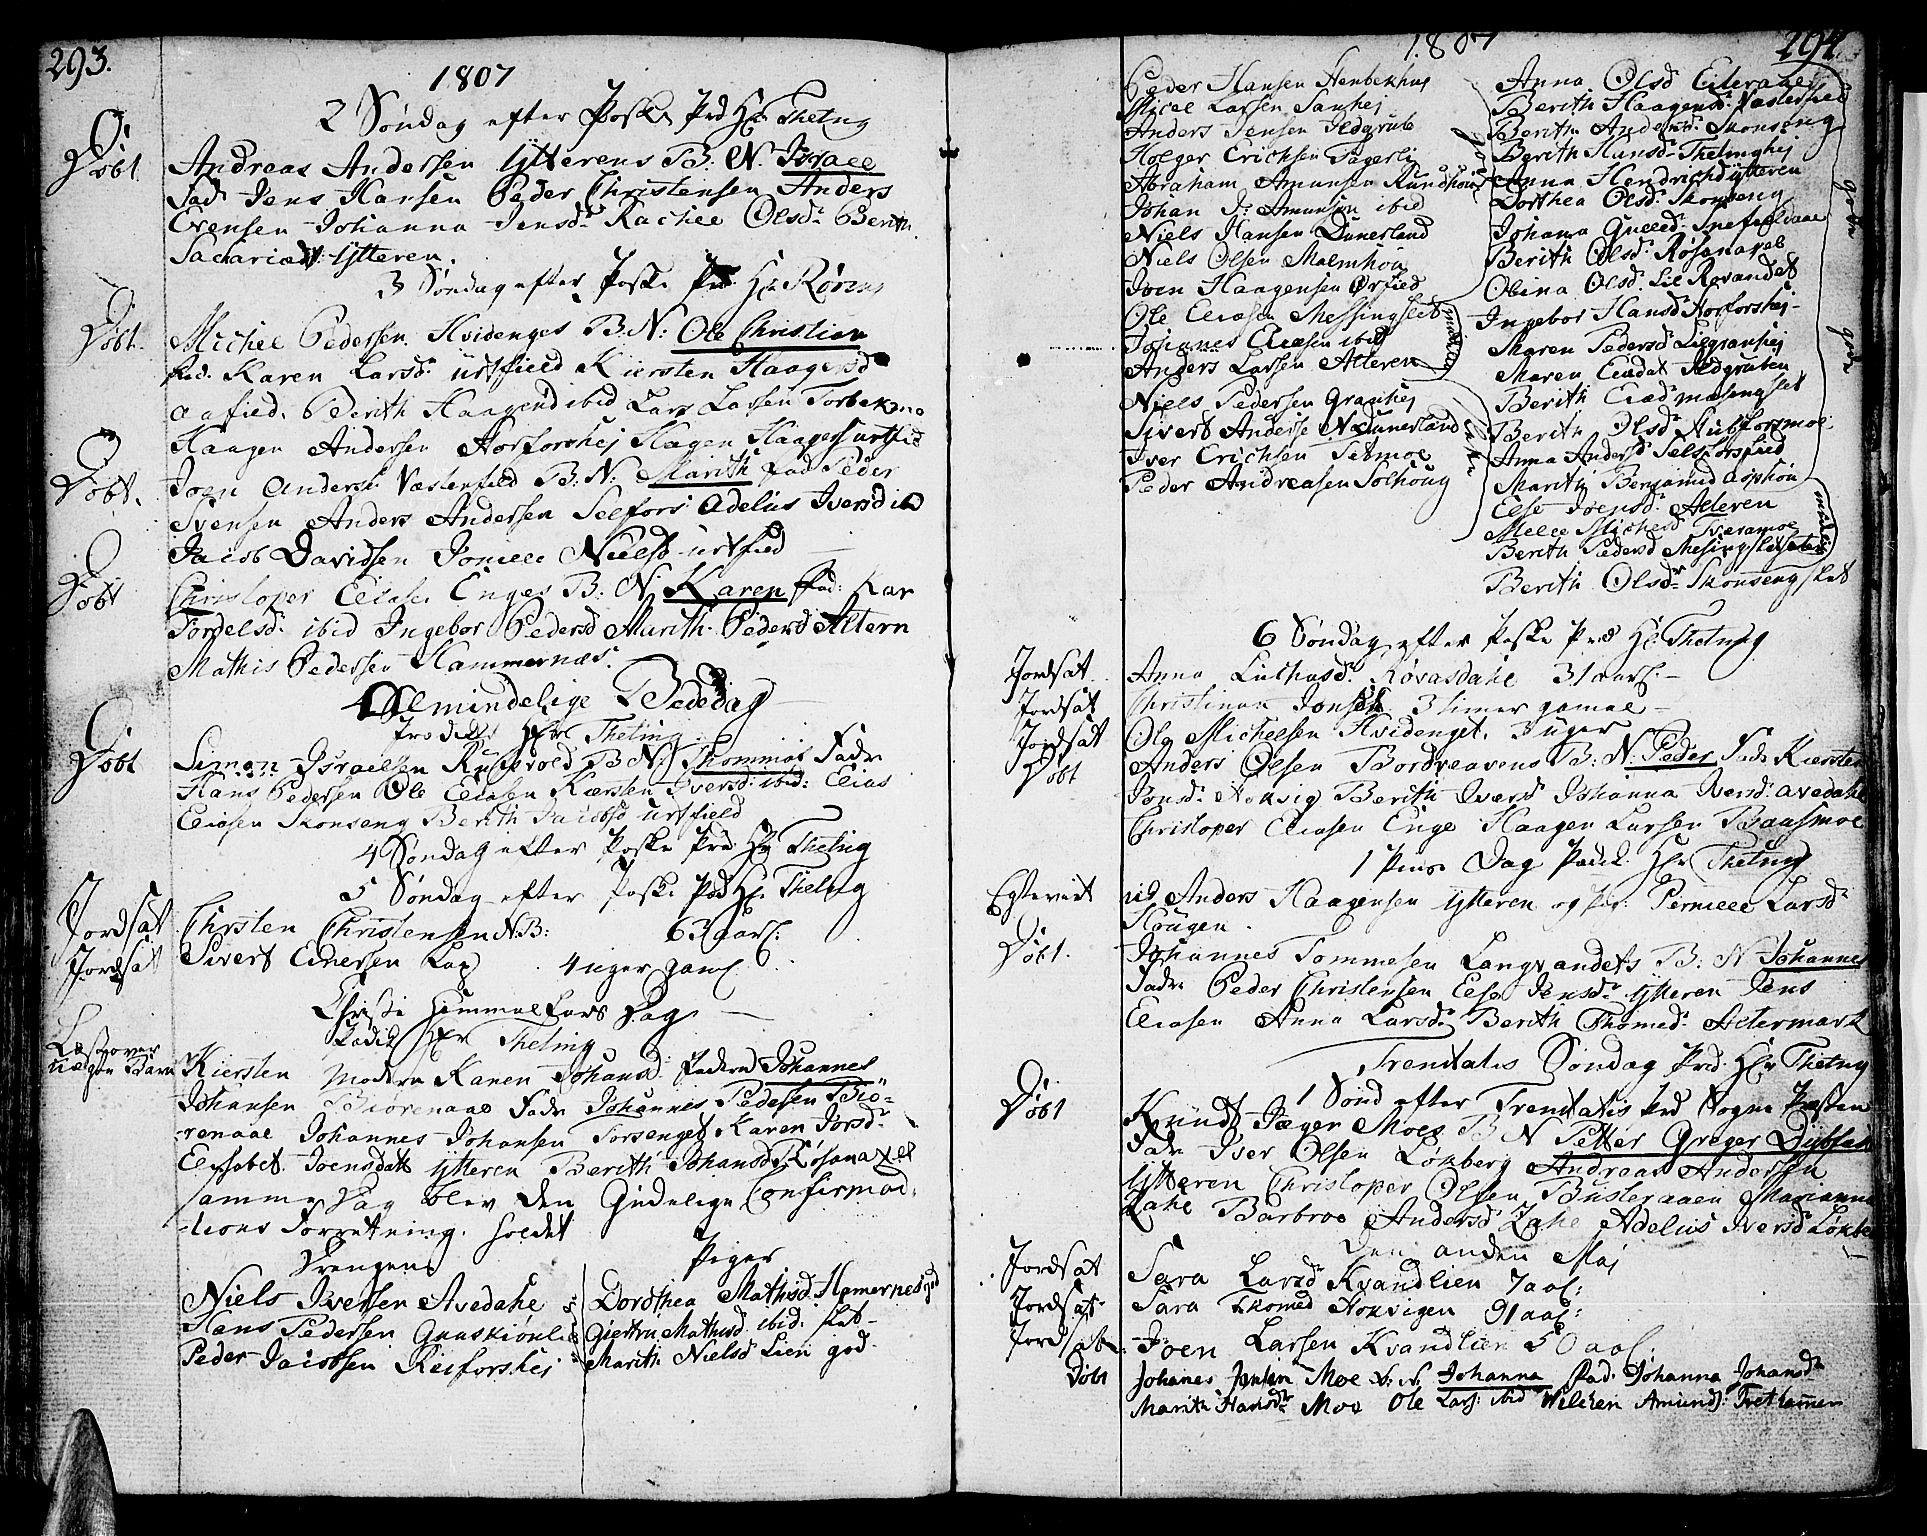 293.
1807
2 Søndag efter Poske Præd Hr Theting
Døbt
Andreas Andersen Ytterens B. N. Israel
Fad Jens Hansen Peder Christensen Anders
Evensen Johanna Jensd. Rachel Olsd. Berith
Sacariæd. Ytteren.
3 Søndag efter Poske Præd Hr Røren
Døbt.
Michel Pedersen Hvidenges B. N: Ole Christian
Fad: Karen Larsd. urtfield Kiersten Haagensd
aafield. Berith Haagend ibid Lars Larsen Torbekmo
Haagen Andersen Storforshej Hagen Haagens urtfield
Døbt.
Joen Anders. Næsterfield B: N: Marith Fad Peder
Svensen Anders Andersen Selfors Adelus Iversd ibd
Jacob Davidsen Jomele Nielsd urtfied
Døbt
Christoper Eliase. Enges B: N: Karen Fad: Kar
Tordelsd. ibid Ingebor Pedersd Marith Pedersd Altern
Mathis Pedersen Hammernæs.
Allmindelige Bededag
Prædiket Hr Theting
Døbt
Simon Israelsen Rusevold B. N: Thommas Fadr
Hans Pedersen Ole Eliasen Kiersten Iversd. ibid: Elias
Eliasen Skonseng Berith Jacobsd urtfield
4 Søndag efter Poske Præd Hr Theting
5 Søndag efter Poske Præd Hr Theting
Jordsat
Chrsten Christensen N.B: 63 aar.
Jordsat
Sivert Einersen Lap 4 uger gaml.
Christi Himmelfars Dag
Prædik Hr Theting
Læst over
uægte Barn
Kiersten Modern Karen Johansd. Fadern Johannes
Johansen Biørenaae Fadr Johannes Pedesen Biö-
renaae Johannes Johansen Forsenget Karen Jorsd.
Elisabet Joensdatt Ytteren Berith Johansd Røsenaxel
samme Dag blev den Gudelige Confirmad-
tions Forretning holdet
Drenger
Piger
Niels Iversen Avedahl
Hans Pedersen Gruskiønli
Peder Jacobsen Reiforshej
Dorothea Mathisd Hamernes god
Giertru Mathisd ibid. slet
Marith Nielsd Lien god
1807
294
Peder Hansen Stenbekhug
Micel Larsen Sanhej
Anders Jensen Ildgrub
Holger Erichsen Fagerli
Abraham Amunsen Rundhoug
Johan J: Amunsen ibid
Niels Hansen Dunerland
Niels Olsen Malmhou
Joen Haagensen Ørfied
Ole Eliasen Messingslet
Johannes Eliesen ibid
Anders Larsen Alteren
Niels Pedersen Granhej
Sivert Anderse N.dunerland
Iver Erichsen Setmoe
Peder Andreasen Solhoug
Anna Olsd Eiteraae
Berith Haagensd. Næsterfied
Berith Andersd. Skonseng
Berith Hansd. Thetinghej
Anna Hendrichd Ytteren
Dorthea Olsd. Skonseng
Johana Gulled. Snefieldaae
Berith Olsd. Røsenaxel
Obina Olsd. Lil Røvandet
Ingebor Hansd Storforshej
Maren Pedersd Liggranhej
Maren Eliedat Ildgruben
Berith Eliæd mæsengslet
Berith Olsd Stubforsmoe
Anna Andersd Selsforsfied
Marith Benjamind asphou
Else Joensd: Alteren
Melle Michelsd Tveramoe
Berith Pedersd Mesingsletseter
Berith Olsdr Skonseng slet
god
god
6 Søndag efter Poske Præd Hr Theting
Jordsat
Anna Luchasd. Røvasdahl 31 aar.
Jordsat
Christinan Jonsen 3 timer gamel
Jordsat
Ole Michelsen Hvidenget. 3 uger
Døbt
Anders Olsen Bordvedvens B: N: Peder Fadr Kiersten
Jonsd. Hokvig Berith Iversd Johanna Iversd. avedahl
Christoper Eliasen Enge Haagen Larsen Baasmoe
1 Pins Dag Prædik. Hr Theting
Egteviet
ud Anders Haagensen Ytteren og pig. Pernelle Larsd
Hougen.
Døbt.
Johannes Tommesen Langvandets B: N Johannes
Fadr Peder Christensen Else Jensd. Ytteren Jens
Eliasen Anna Larsd. Berith Thomed. Altermark
Trenitatis Søndag Præd. Hr Theting
1 Sønd efter Trenitatis Præd Sogne Præsten
Døbt
Knudt Jæger Moes B N Petter Greger Dybfest
Fadr Iver Olsen Løkberg Andreas Andersen
Ytteren Christoper Olsen Busteraaen Marianne
Zahl Barbroe Andersd Zahl Adelus Iversd Løkbe
Den anden Maj
Jordsat
Sara Larsd Kvandlien 7 aar:
Jordsat
Sara Thomed Hokvigen 91 aar:
Jordsat
Joen Larsen Kvandlien 50 aar.
Døbt
Johanes Jensen Moe B: N. Johanna Fad. Johanna Johansd.
Marith Hansdr Moe Ole Lars: ibid Wilchen Amunds: Trethammer